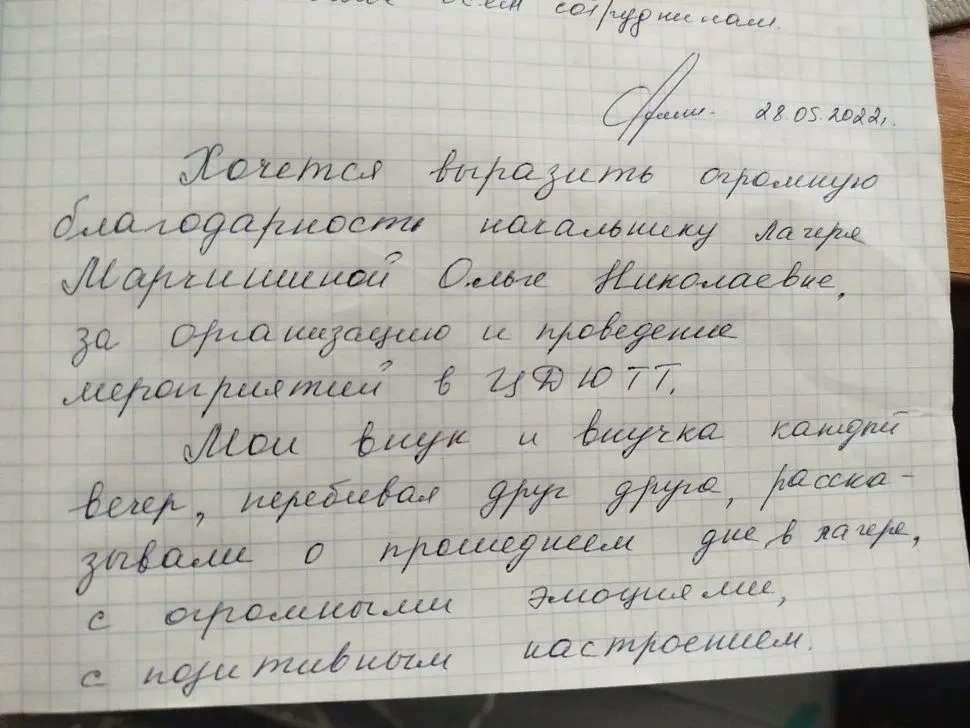 всем сотрудникам.
28.05.2022г.
Хочется выразить огромную
благодарность начальнику лагеря
Марчишиной Ольге Николаевне,
за организацию и проведение
мероприятий в ЦДЮТТ.
Мои внук и внучка каждый
вечер, перебивая друг друга, расска-
зывали о прошедшем дне в лагере,
с огромными эмоциями,
с позитивным настроением.